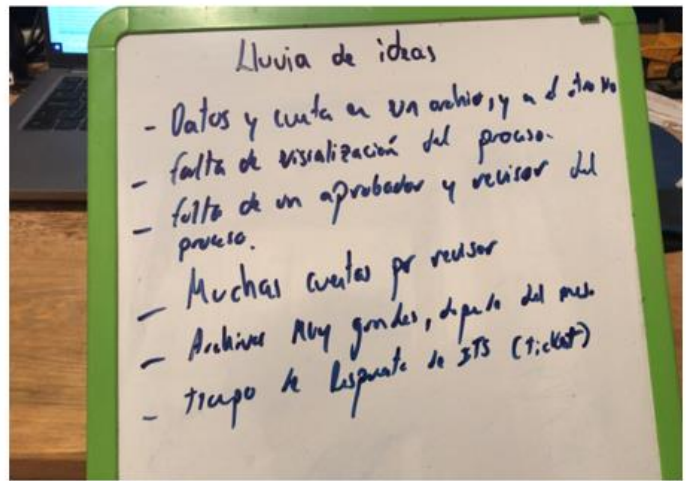 Lluvia de ideas
- Datos y cuenta en un archivo, y en el otro no
- falta de visialización del proceso.
- falta de un aprobador y revisor del
proceso.
- Muchas cuentas por revisar
- Archivos muy grandes, depende del mes.
- Tiempo de Respuesta de ITS (ticket)